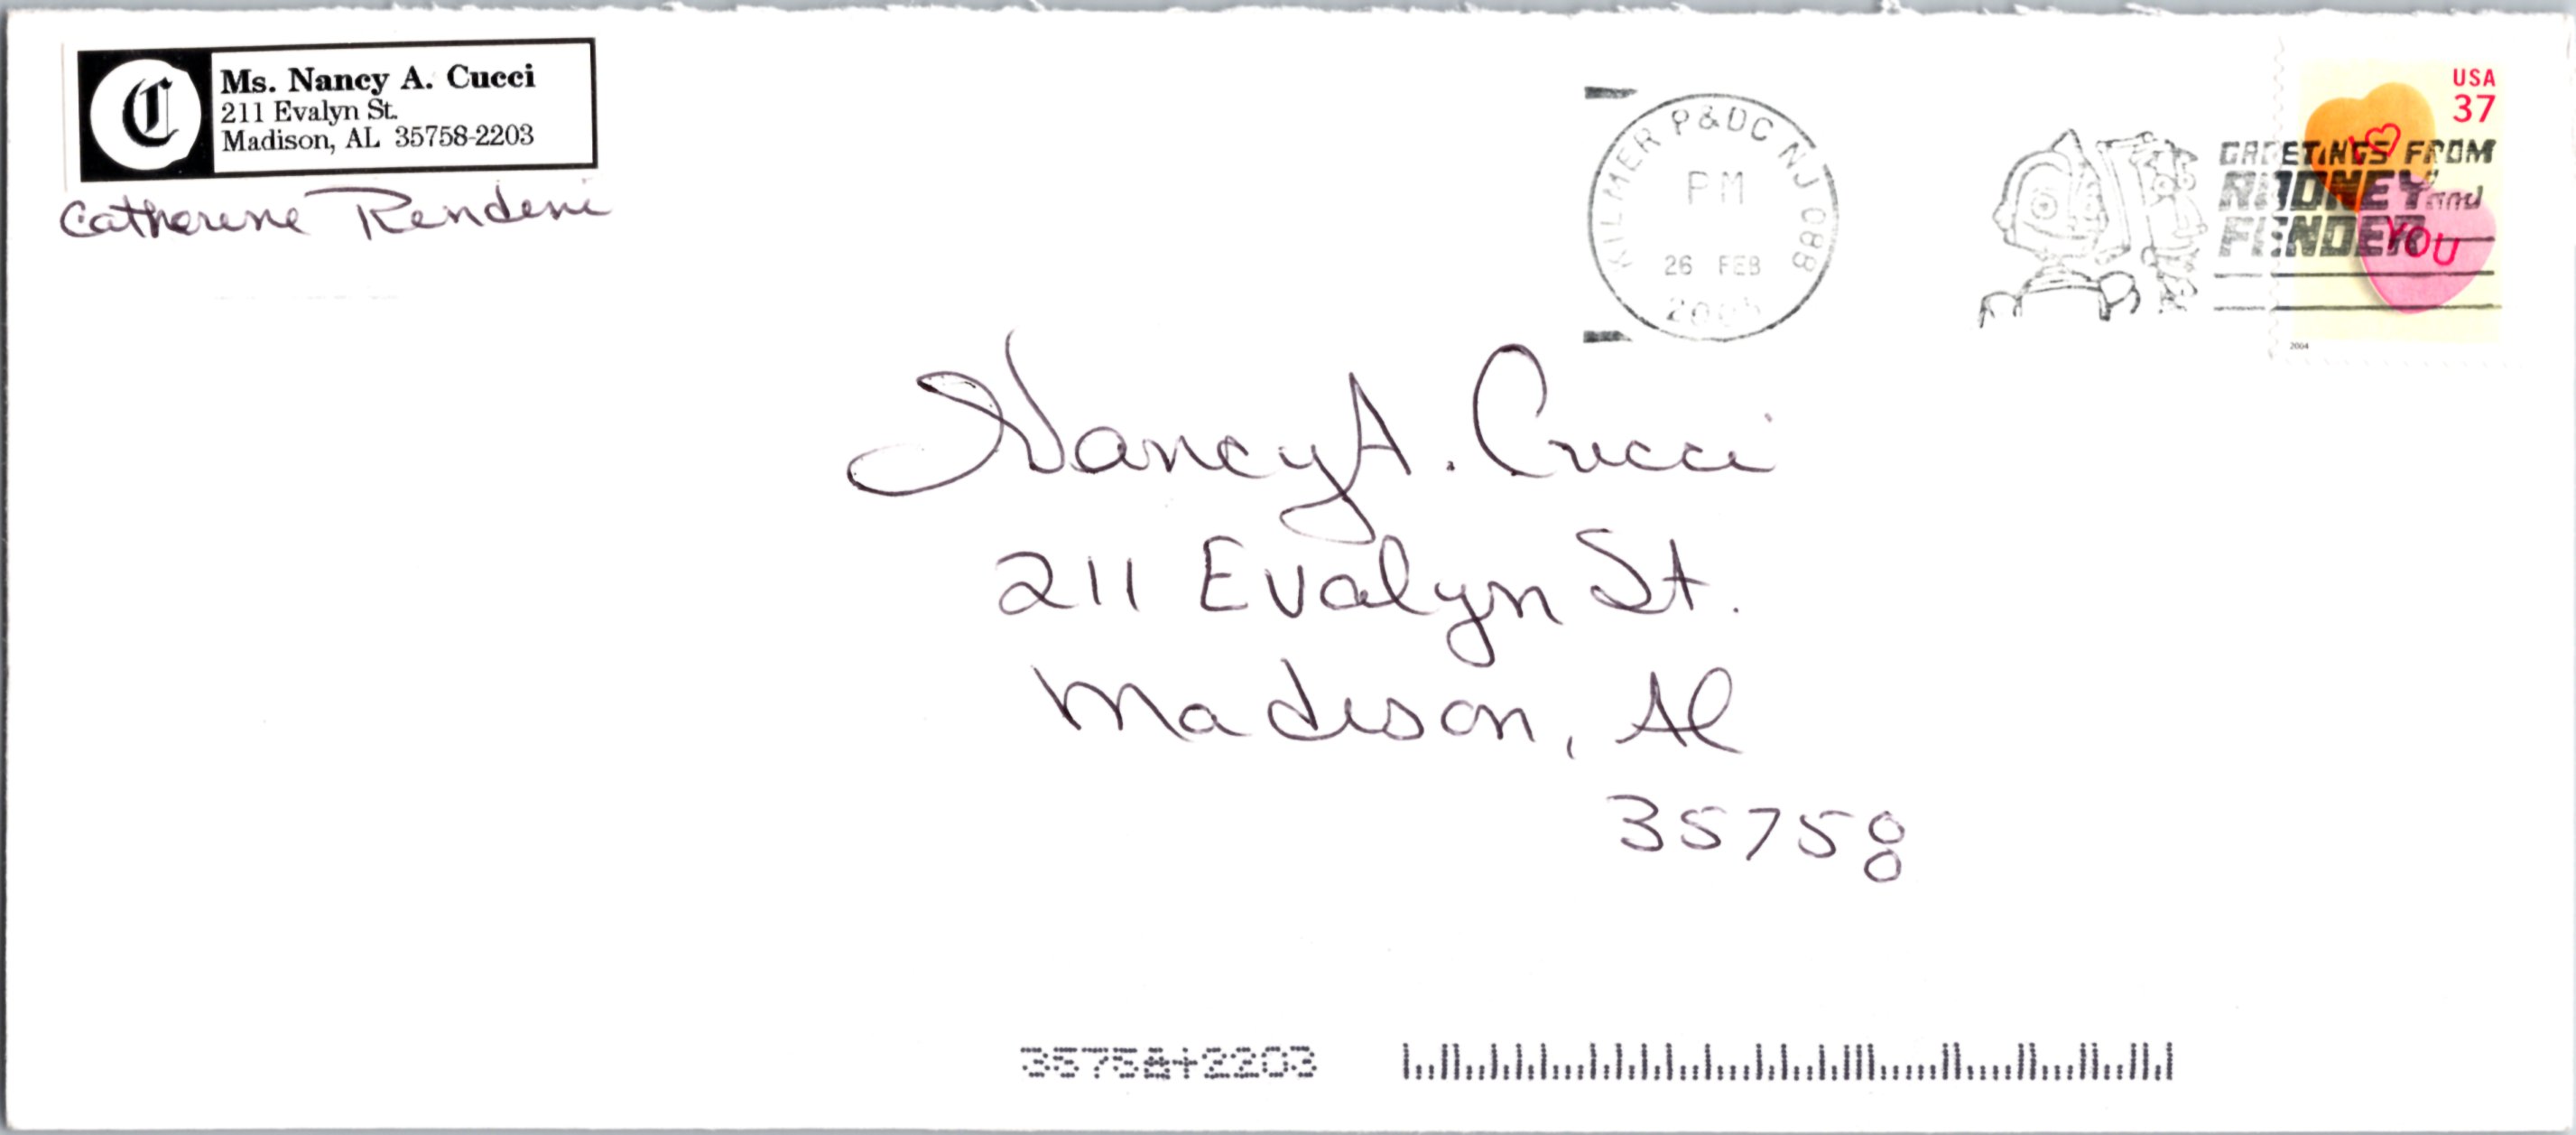 C
Ms. Nancy A. Cucci
211 Evalyn St.
Madison, AL 35758-2203
Catherine Rendeni
KILMER P&DC NJ 088
PM
26 FEB
2005
GREETINGS FROM
RODNEY and
FENDER
USA
37
I
YOU
2004
Nancy A. Cucci
211 Evalyn St.
Madison, Al
35758
35758+2203